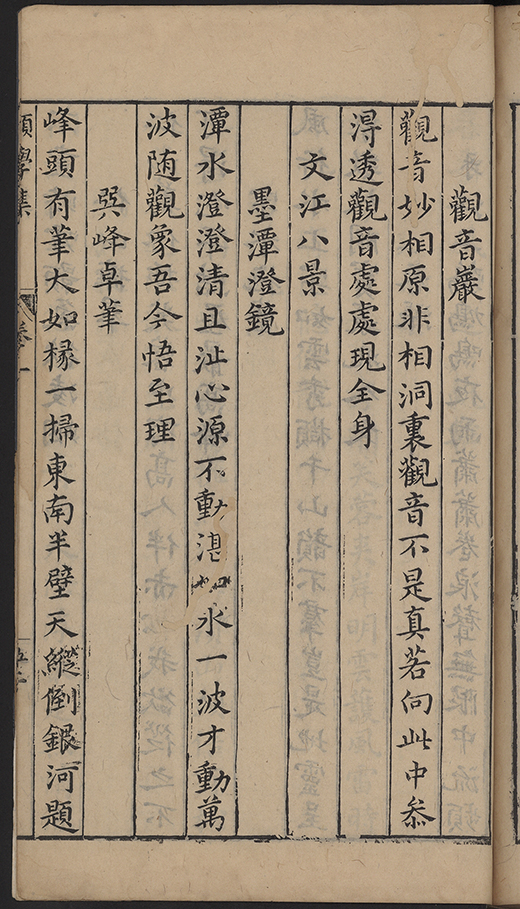 觀音巖
觀音妙相原非相洞裏觀音不是真若向此中叅
淂透觀音處處現全身
文江八景
墨潭澄鏡
潭水澄澄清且沚心源不動湛如水一波才動萬
波随觀象吾今悟至理
巽峰卓筆
峰頭有筆大如椽一掃東南半壁天縱倒銀河題
學集
卷一